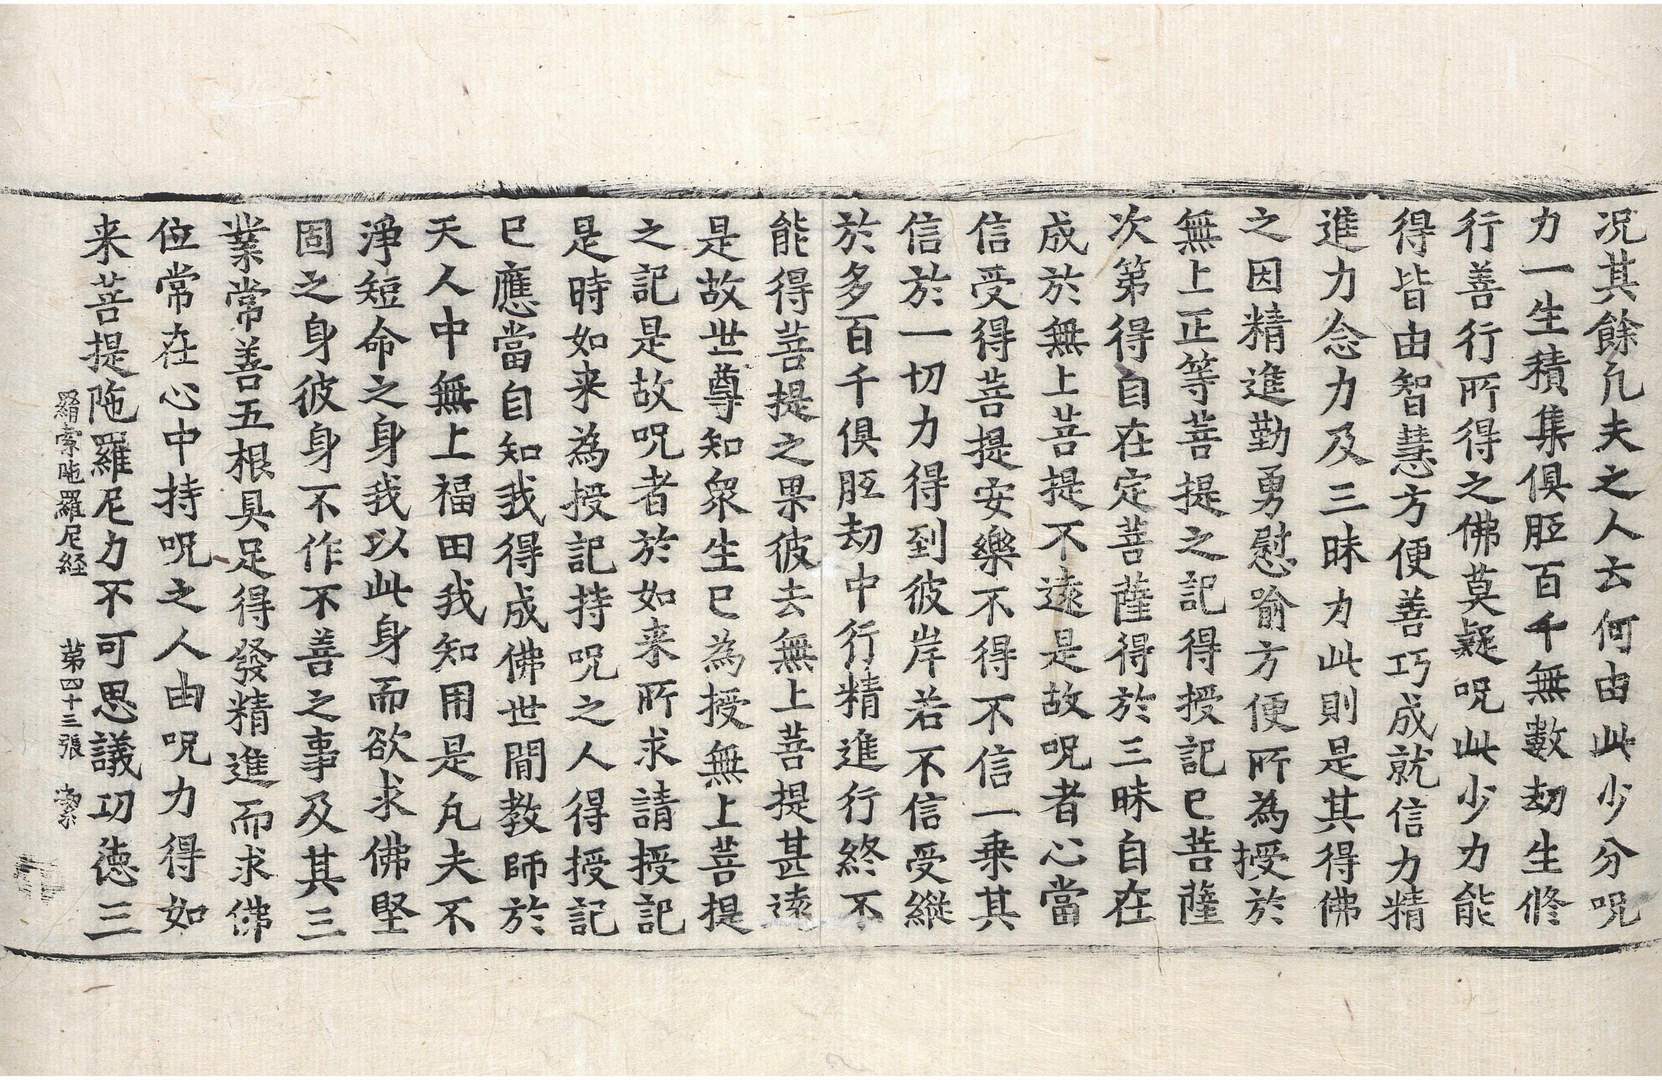 况其餘凡夫之人云何由此少分呪
力一生積集俱胝百千無數劫生修
行善行所得之佛莫疑呪此少力能
得皆由智慧方便善巧成就信力精
進力念力及三昧力此則是其得佛
之因精進勤勇慰喻方便所為授於
無上正等菩提之記得授記已菩薩
次第得自在定菩薩得於三昧自在
成於無上菩提不遠是故呪者心當
信受得菩提安樂不得不信一乗其
信於一切力得到彼岸若不信受縱
於多百千俱胝劫中行精進行終不
能得菩提之果彼去無上菩提甚遠
是故世尊知衆生已為授無上菩提
之記是故呪者於如来所求請授記
是時如来為授記持呪之人得授記
已應當自知我得成佛世間教師於
天人中無上福田我知用是凡夫不
淨短命之身我以此身而欲求佛堅
固之身彼身不作不善之事及其三
業常善五根具足得發精進而求佛
位常在心中持呪之人由呪力得如
来菩提陁羅尼力不可思議功德三
羂索陁羅尼経 第四十三張 潔